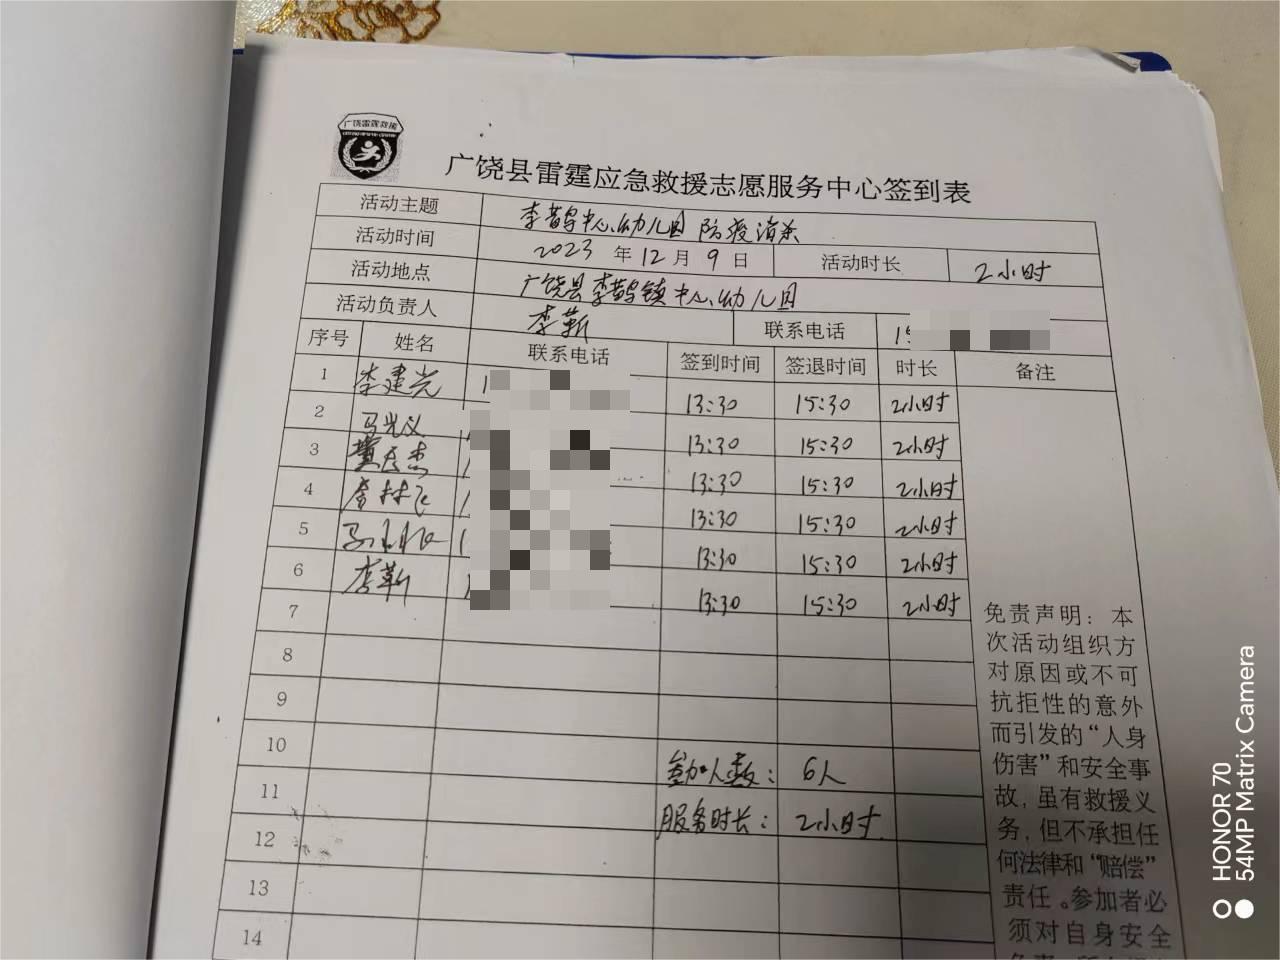 广饶雷霆救援
广饶县雷霆应急救援志愿服务中心签到表
活动主题 李鹊中心幼儿园 防疫消杀
活动时间 2023 年 12 月 9 日 活动时长 2小时
活动地点 广饶县李鹊镇中心幼儿园
活动负责人 李靳 联系电话 15
序号 姓名 联系电话 签到时间 签退时间 时长 备注
1 李建光 1 13:30 15:30 2小时
2 马光义 13:30 15:30 2小时
3 13:30 15:30 2小时
4 李林飞 13:30 15:30 2小时
5 13:30 15:30 2小时
6 李靳 13:30 15:30 2小时
7
8
9
10 参加人数: 6人
11 服务时长: 2小时
12
13
14
免责声明: 本
次活动组织方
对原因或不可
抗拒性的意外
而引发的“人身
伤害”和安全事
故, 虽有救援义
务, 但不承担任
何法律和“赔偿”
责任。参加者必
须对自身安全
HONOR 70
54MP Matrix Camera